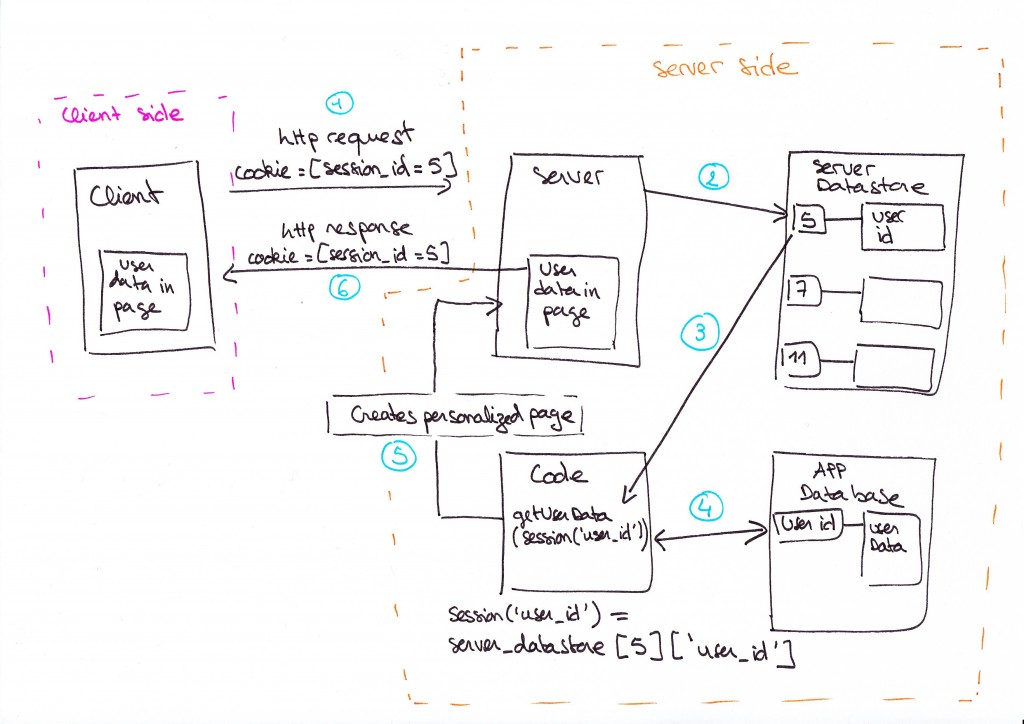 Server side
Client side
1
http request
cookie = [session_id = 5]
Client
User
data in
page
http response
cookie = [session_id = 5]
6
Server
User
data in
page
2
Server
Datastore
5
User
id
7
11
3
Creates personalized page
5
Code
getUserData
(session('user_id'))
4
APP
Database
User id
User
Data
session('user_id') =
server_datastore [5] ['user_id']